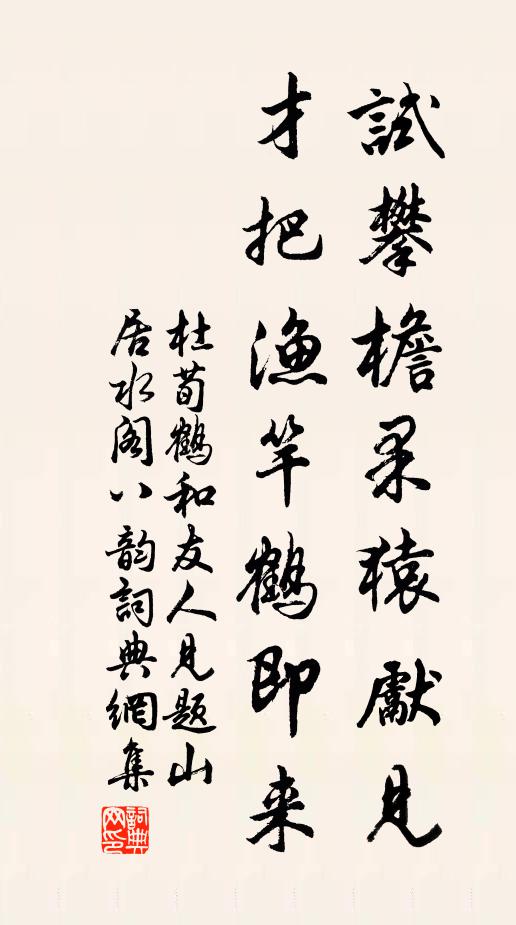 試攀檐果猿獻見
才把漁竿鶴即来
杜荀鶴和友人見题山
居水阁八韵詞典網集
詞典
网印